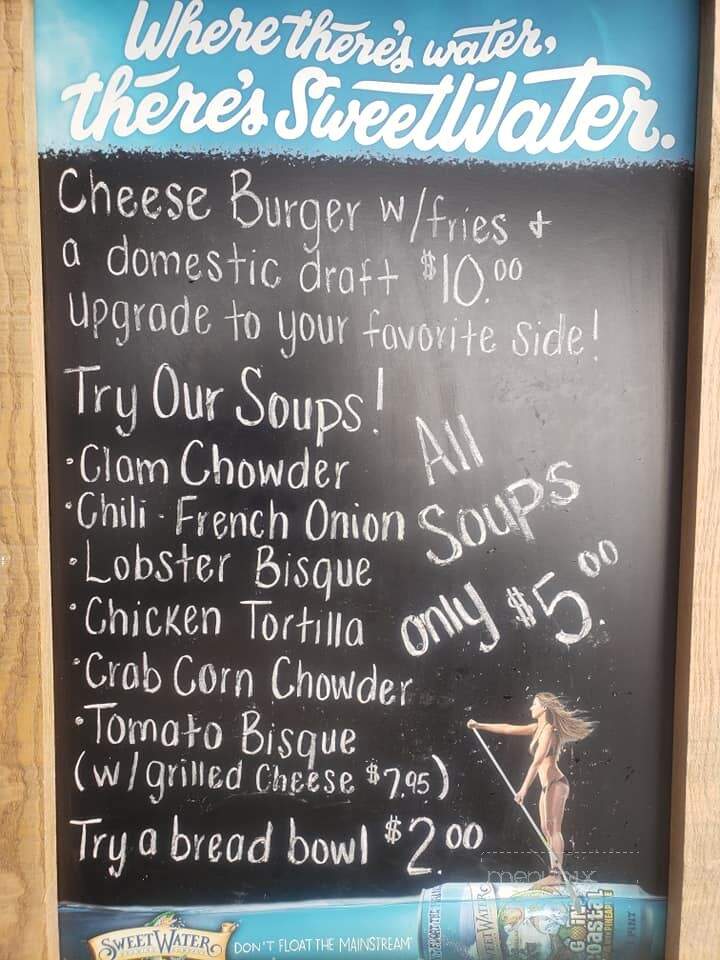 Where there's water,
there's SweetWater.
Cheese Burger w/fries &
a domestic draft $10.00
upgrade to your favorite side!
Try Our Soups!
• Clam Chowder
• Chili - French Onion
• Lobster Bisque
• Chicken Tortilla
• Crab Corn Chowder
• Tomato Bisque
(w/grilled Cheese $7.95)
All
Soups
only $5.00
Try a bread bowl $2.00
menupix
SWEETWATER
DON'T FLOAT THE MAINSTREAM
GOIN'
Coastal
PINEAPPLE
PINT